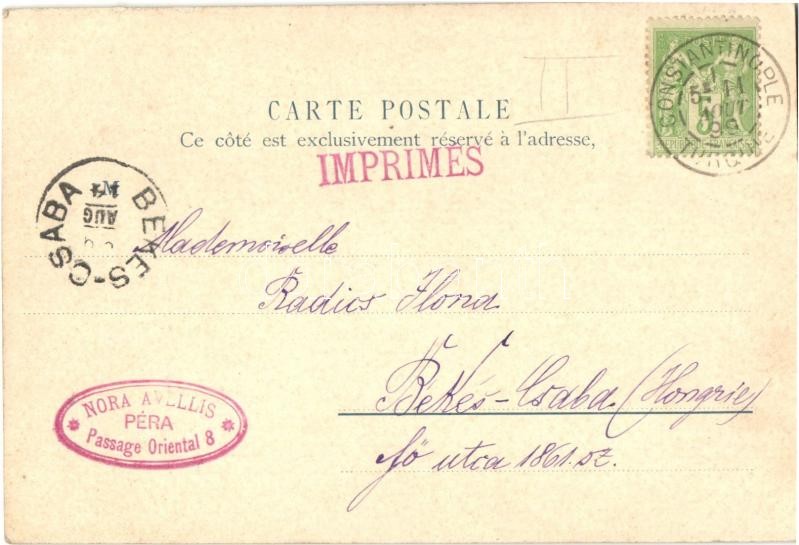 CARTE POSTALE
Ce côté est exclusivement réservé à l'adresse,
IMPRIMÉS
CONSTANTINOPLE
11
AOUT
99
TURQUIE
5
BÉKÉS-CSABA
AUG
Mademoiselle
Radics Ilona
Békés-Csaba (Hongrie)
fő utca 1861. sz.
NORA AVELLIS
PÉRA
Passage Oriental 8